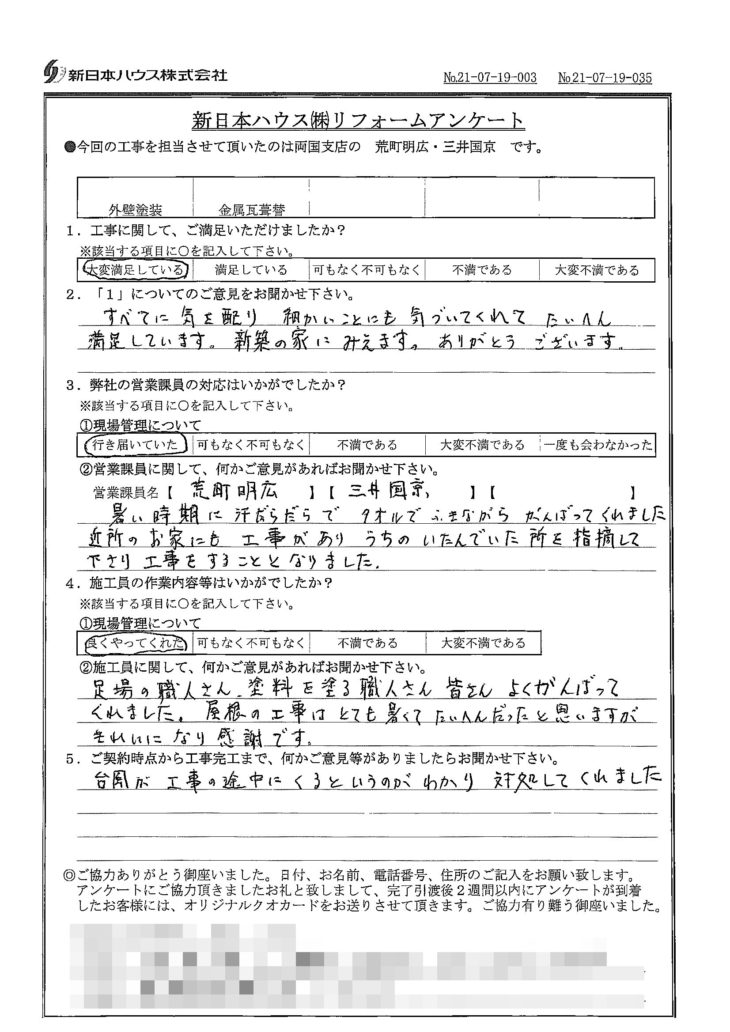 新日本ハウス株式会社 No.21-07-19-003 No.21-07-19-035
新日本ハウス㈱リフォームアンケート
●今回の工事を担当させて頂いたのは両国支店の 荒町明広・三井国京 です。
外壁塗装 金属瓦葺替
1．工事に関して、ご満足いただけましたか？
※該当する項目に○を記入して下さい。
大変満足している 満足している 可もなく不可もなく 不満である 大変不満である
2．「1」についてのご意見をお聞かせ下さい。
すべてに 気を配り 細かいことにも 気づいてくれて たいへん
満足しています。 新築の家に みえます。 ありがとう ございます。
3．弊社の営業課員の対応はいかがでしたか？
※該当する項目に○を記入して下さい。
①現場管理について
行き届いていた 可もなく不可もなく 不満である 大変不満である 一度も会わなかった
②営業課員に関して、何かご意見があればお聞かせ下さい。
営業課員名【 荒町明広 】【 三井国京 】【 】
暑い時期に 汗だらだらで タオルで ふきながら がんばってくれました
近所の お家にも 工事があり うちの いたんでいた 所を 指摘して
下さり 工事をすることとなりました。
4．施工員の作業内容等はいかがでしたか？
※該当する項目に○を記入して下さい。
①現場管理について
良くやってくれた 可もなく不可もなく 不満である 大変不満である
②施工員に関して、何かご意見があればお聞かせ下さい。
足場の職人さん、塗料を塗る職人さん 皆さん よくがんばって
くれました。 屋根の工事は とても暑くて たいへんだったと思いますが
きれいになり 感謝です。
5．ご契約時点から工事完工まで、何かご意見等がありましたらお聞かせ下さい。
台風が 工事の途中に くるというのが わかり 対処してくれました
◎ご協力ありがとう御座いました。日付、お名前、電話番号、住所のご記入をお願い致します。
アンケートにご協力頂きましたお礼と致しまして、完了引渡後２週間以内にアンケートが到着
したお客様には、オリジナルクオカードをお送りさせて頂きます。ご協力有り難う御座いました。